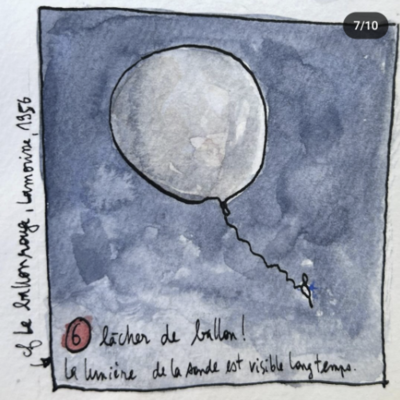 7/10
cf Le ballon rouge, Lamorisse, 1956
6 lâcher de ballon!
La lumière de la sonde est visible longtemps.